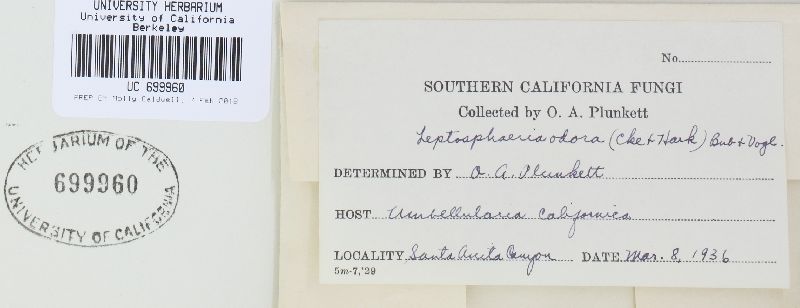 UNIVERSITY HERBARIUM
University of California
Berkeley
UC 699960
PREP BY Molly Caldwell, Feb 2019
HERBARIUM OF THE
699960
UNIVERSITY OF CALIFORNIA
No.
SOUTHERN CALIFORNIA FUNGI
Collected by O. A. Plunkett
Leptosphaeria odora (Cke & Hark) Bub & Vogl.
DETERMINED BY O. A. Plunkett
HOST Umbellularia Californica
LOCALITY Santa Anita Canyon DATE Mar. 8, 1936
5m-7,'29